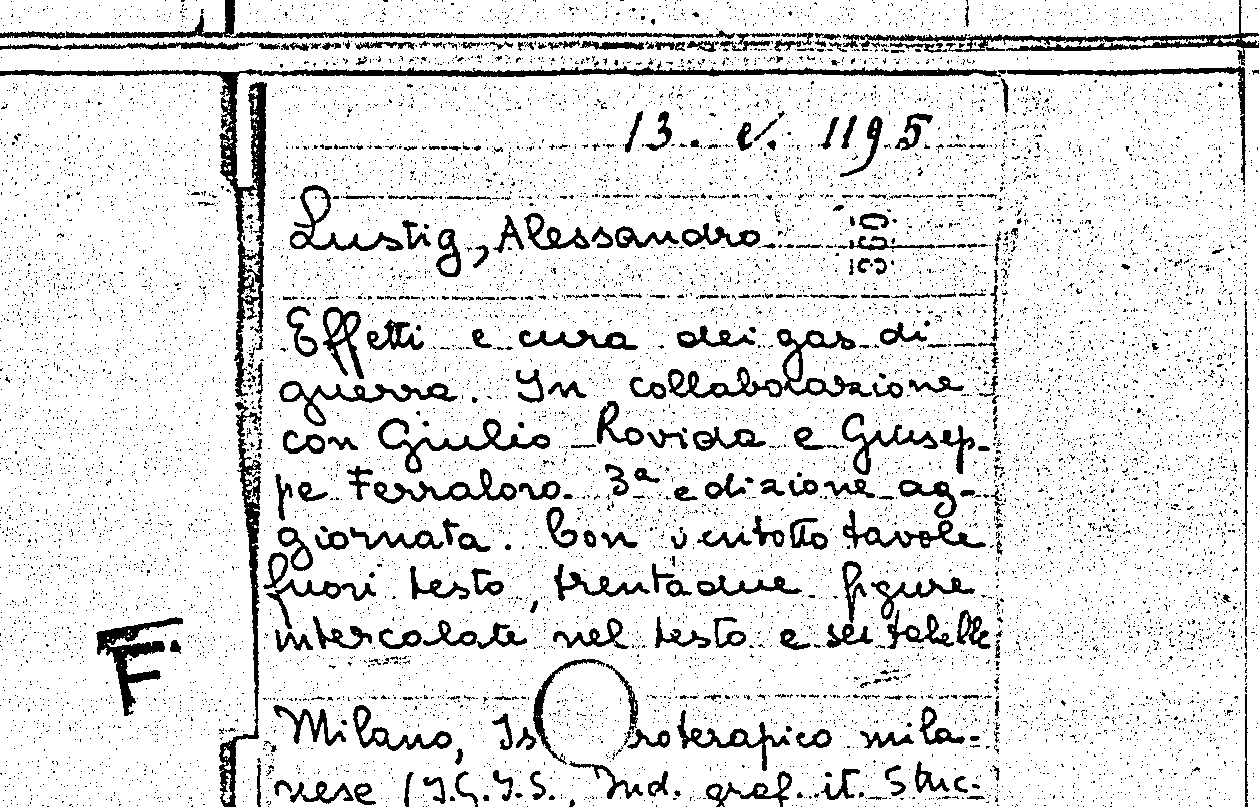 13. e. 1195
Lustig, Alessandro.
Effetti e cura dei gas di
guerra. In collaborazione
con Giulio Rovida e Giusep-
pe Ferraloro. 3ª edizione ag-
giornata. Con ventotto tavole
fuori testo, trentadue figure
intercalate nel testo e sei tabelle
F
Milano, Is roterapico mila-
nese (I.G.I.S., Ind. graf. it. Stuc-